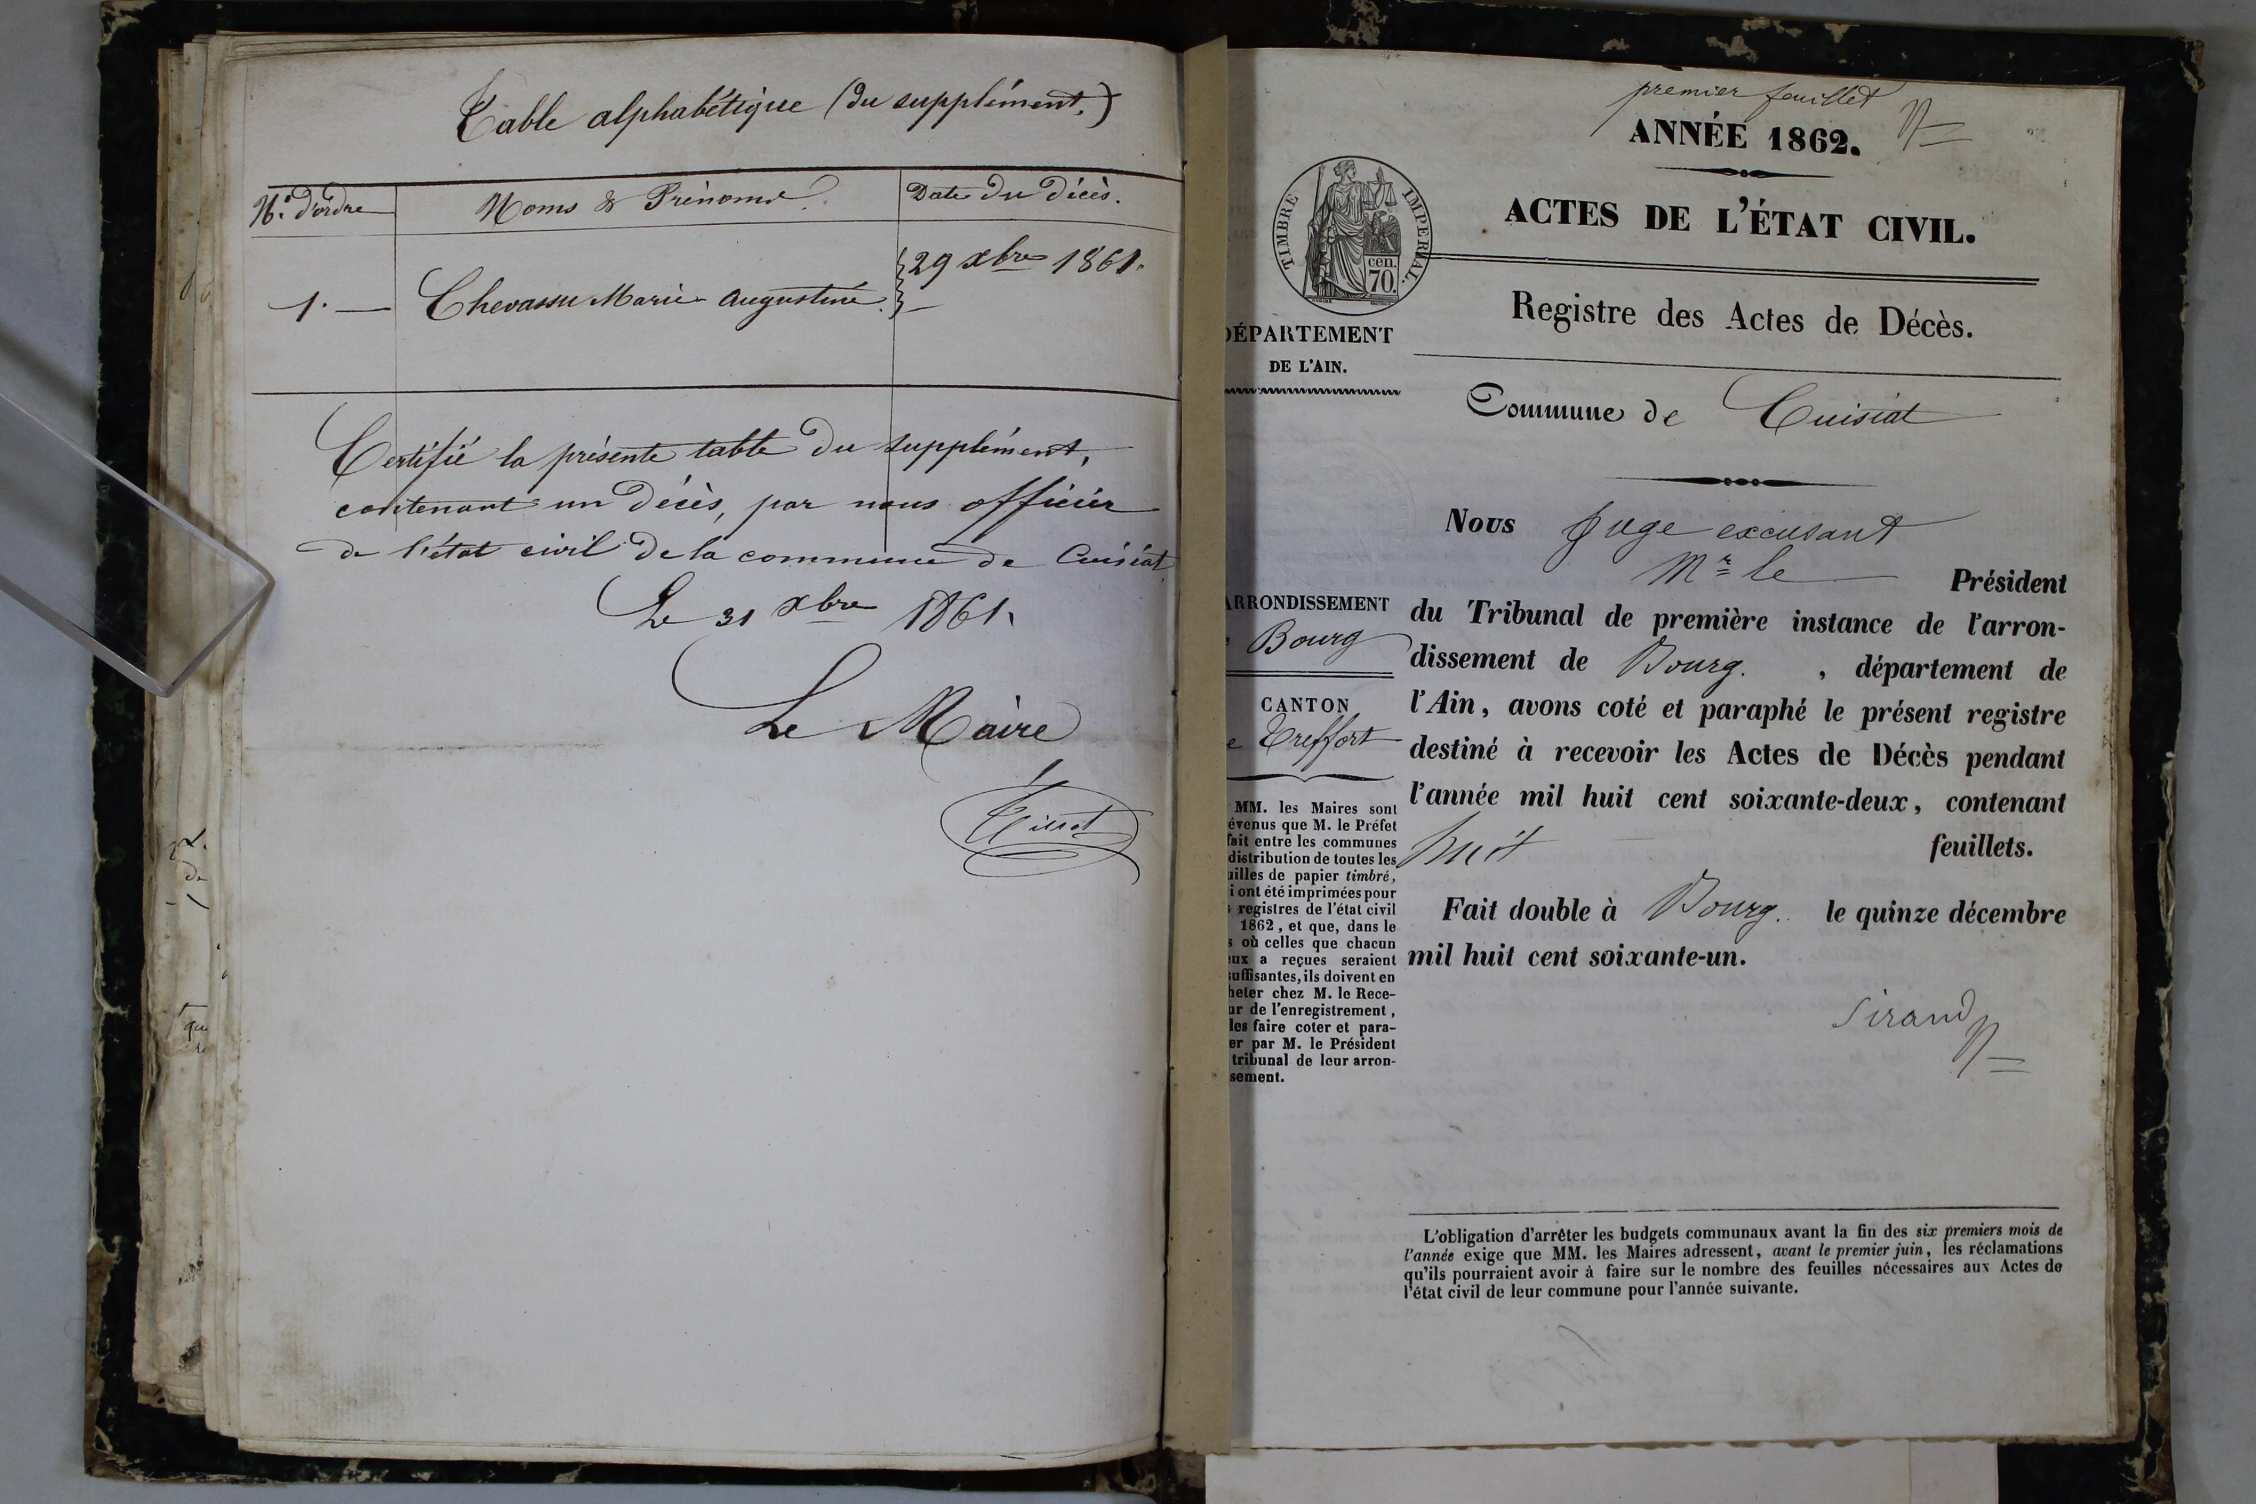 Table alphabétique (du supplément.)
N.° d'ordre
Noms & Prénoms.
Date du décès.
1. —
Chevassu Marie Augustine.
29 xbre 1861.
Certifié la présente table du supplément,
contenant un décès, par nous officier
de l'état civil de la commune de Cuisiat.
Le 31 xbre 1861.
Le Maire
premier feuillet
ANNÉE 1862.
ACTES DE L'ÉTAT CIVIL.
TIMBRE IMPERIAL.
cen.
70.
Registre des Actes de Décès.
DÉPARTEMENT
DE L'AIN.
Commune de Cuisiat
Nous Juge excusant
Mr le Président
ARRONDISSEMENT
Bourg
CANTON
Treffort
du Tribunal de première instance de l'arron-
dissement de Bourg. , département de
l'Ain, avons coté et paraphé le présent registre
destiné à recevoir les Actes de Décès pendant
l'année mil huit cent soixante-deux, contenant
huit feuillets.
Fait double à Bourg. le quinze décembre
mil huit cent soixante-un.
Sirand
MM. les Maires sont
évenus que M. le Préfet
fait entre les communes
distribution de toutes les
uilles de papier timbré,
i ont été imprimées pour
s registres de l'état civil
1862, et que, dans le
s où celles que chacun
eux a reçues seraient
suffisantes, ils doivent en
heter chez M. le Rece-
ur de l'enregistrement,
les faire coter et para-
er par M. le Président
tribunal de leur arron-
sement.
L'obligation d'arrêter les budgets communaux avant la fin des six premiers mois de
l'année exige que MM. les Maires adressent, avant le premier juin, les réclamations
qu'ils pourraient avoir à faire sur le nombre des feuilles nécessaires aux Actes de
l'état civil de leur commune pour l'année suivante.